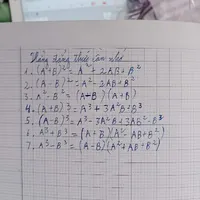 Hằng đẳng thức cần nhớ
1. (A+B)² = A² + 2AB + B²
2. (A-B)² = A² - 2AB + B²
3. A² - B² = (A+B)(A+B)
4. (A+B)³ = A³ + 3A²B + B³
5. (A-B)³ = A³ - 3A²B + 3AB² - B³
6. A³ + B³ = (A+B)(A² - AB + B²)
7. A³ - B³ = (A-B)(A² + AB + B²)